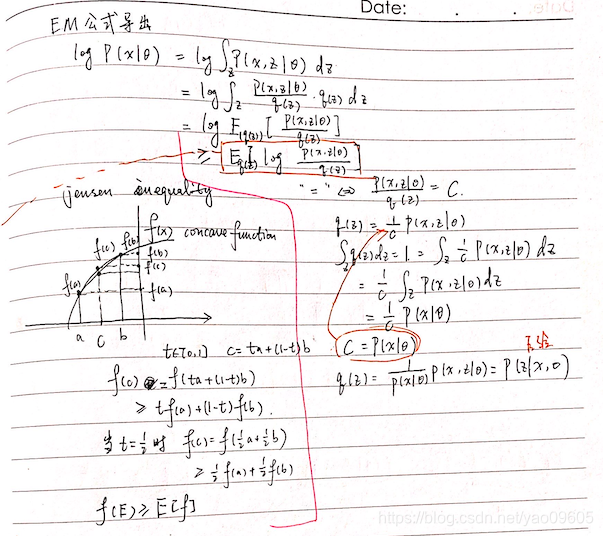 Date:
EM 公式导出
log P(x|θ) = log ∫_z P(x,z|θ) dz
= log ∫_z P(x,z|θ)/q(z) · q(z) dz
= log E_(q(z)) [ P(x,z|θ)/q(z) ]
≥ E_q(z) [ log P(x,z|θ)/q(z) ]
"=" ⇔ P(x,z|θ)/q(z) = C.
jensen inequality
f(x) concave function
f(c) f(b) f(b)
f(c)
f(a) f(a)
a c b
t∈[0,1] c=ta+(1-t)b
f(c) = f(ta+(1-t)b)
≥ tf(a)+(1-t)f(b).
当 t=1/2 时 f(c)=f(1/2a+1/2b)
≥ 1/2f(a)+1/2f(b)
f(E) ≥ E[f]
q(z) = 1/C P(x,z|θ)
∫_z q(z)dz = 1 = ∫_z 1/C P(x,z|θ) dz
= 1/C ∫_z P(x,z|θ)dz
= 1/C P(x|θ)
C = P(x|θ)
后验
q(z) = 1/P(x|θ) P(x,z|θ) = P(z|x,θ)
https://blog.csdn.net/yao09605